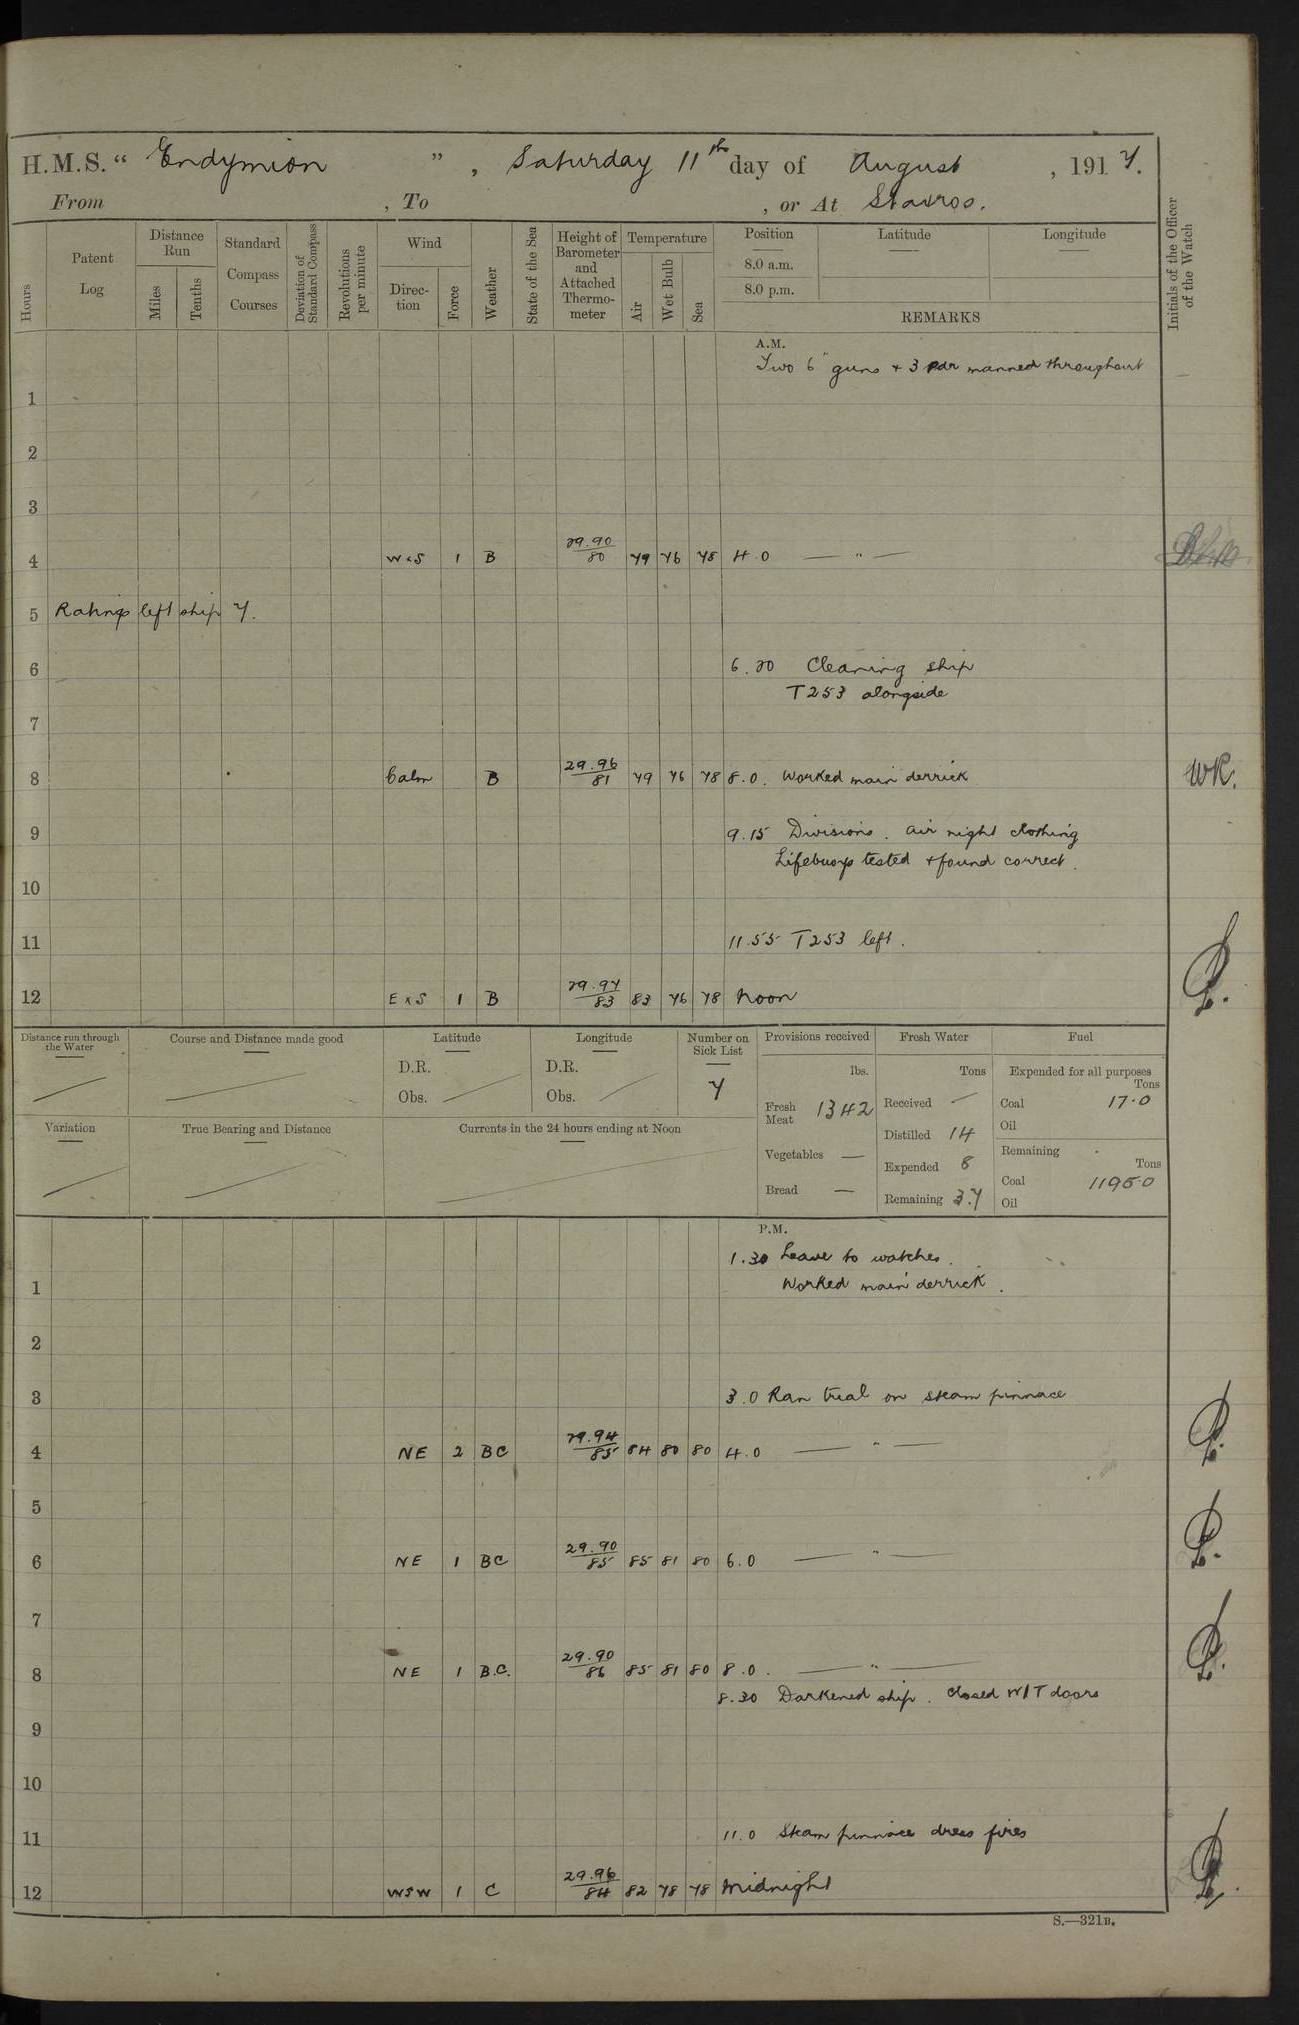 H.M.S. “ Endymion ” , Saturday 11th day of August , 1917.
From , To , or At Stavros.
Hours
Patent Log
Distance Run
Miles
Tenths
Standard Compass Courses
Deviation of Standard Compass
Revolutions per minute
Wind
Direction
Force
Weather
State of the Sea
Height of Barometer and Attached Thermometer
Temperature
Air
Wet Bulb
Sea
Position
8.0 a.m.
8.0 p.m.
Latitude
Longitude
REMARKS
Initials of the Officer of the Watch
A.M.
Two 6" guns + 3 pdr manned throughout
1
2
3
4 WxS 1 B 29.90/80 79 76 78 4.0 — " —
5 Ratings left ship 7.
6 6.20 Cleaning ship
T253 alongside
7
8 Calm B 29.96/81 79 76 78 8.0. Worked main derrick WR.
9 9.15 Divisions. Air night clothing
Lifebuoys tested + found correct.
10
11 11.55 T253 left.
12 ExS 1 B 29.97/83 83 76 78 Noon
Distance run through the Water
Course and Distance made good
Latitude
D.R.
Obs.
Longitude
D.R.
Obs.
Number on Sick List
7
Provisions received
lbs.
Fresh Meat 1342
Vegetables —
Bread —
Fresh Water
Tons
Received —
Distilled 14
Expended 8
Remaining 37
Fuel
Expended for all purposes
Tons
Coal 17.0
Oil
Remaining
Tons
Coal
Oil
Variation
True Bearing and Distance
Currents in the 24 hours ending at Noon
P.M.
1.30 Leave to watches.
1 Worked main derrick.
2
3 3.0 Ran trial on steam pinnace
4 NE 2 BC 29.94/85 84 80 80 4.0 — " —
5
6 NE 1 BC 29.90/85 85 81 80 6.0 — " —
7
8 NE 1 B.C. 29.90/86 85 81 80 8.0. — " —
8.30 Darkened ship. Closed W/T doors
9
10
11 11.0 Steam pinnace draw fires
12 WSW 1 C 29.96/84 82 78 78 Midnight
S.—321B.